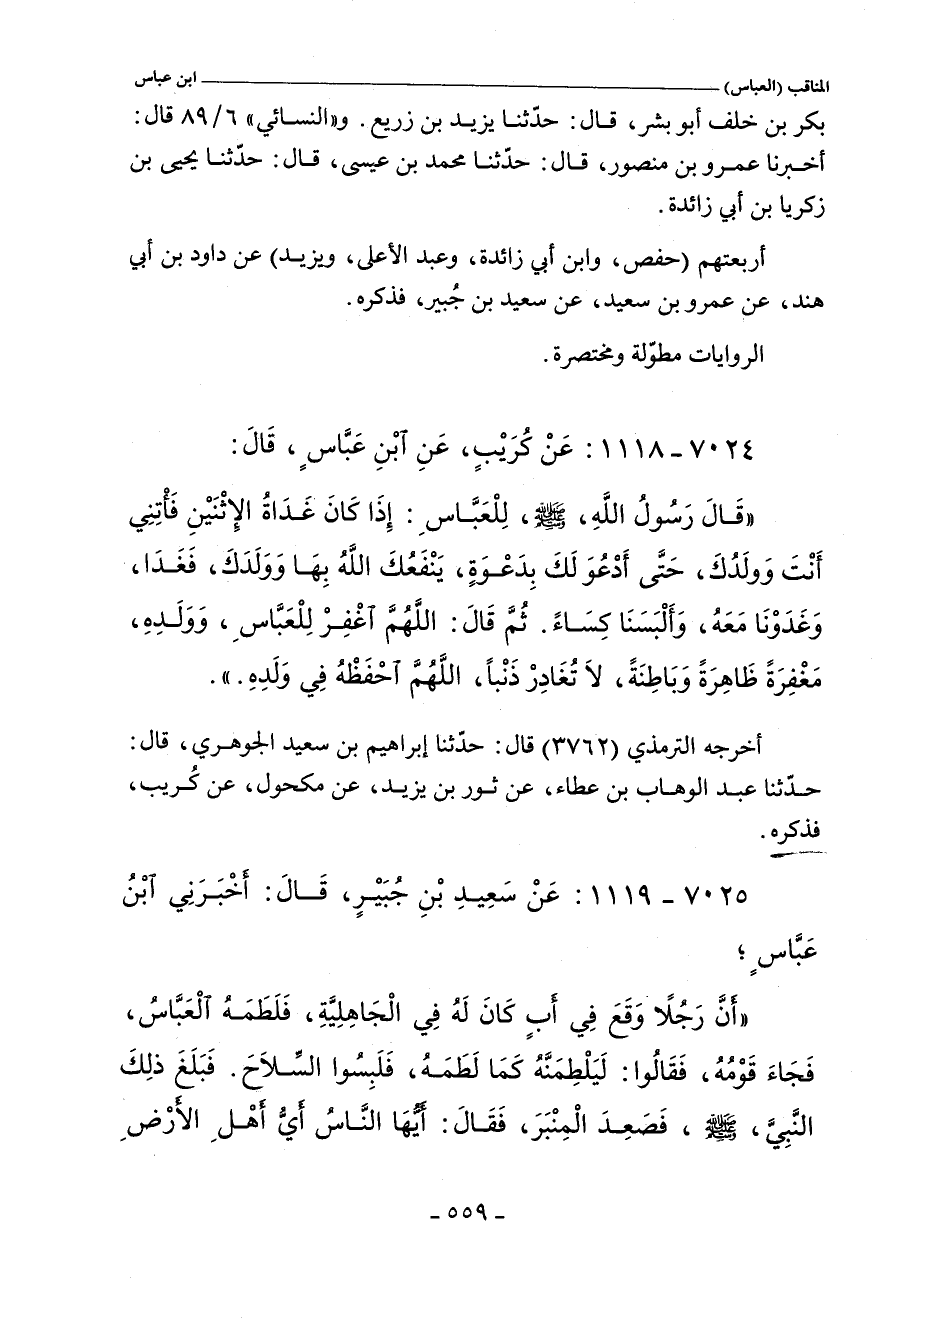 المناقب (العباس) ابن عباس
بكر بن خلف أبو بشر، قال: حدّثنا يزيد بن زريع. و«النسائي» ٨٩/٦ قال:
أخبرنا عمرو بن منصور، قال: حدّثنا محمد بن عيسى، قال: حدّثنا يحيى بن
زكريا بن أبي زائدة.
أربعتهم (حفص، وابن أبي زائدة، وعبد الأعلى، ويزيد) عن داود بن أبي
هند، عن عمرو بن سعيد، عن سعيد بن جُبير، فذكره.
الروايات مطوّلة ومختصرة.
٧٠٢٤ - ١١١٨: عَنْ كُرَيْبٍ، عَنِ ٱبْنِ عَبَّاسٍ، قَالَ:
«قَالَ رَسُولُ اللَّهِ، ﷺ، لِلْعَبَّاسِ: إِذَا كَانَ غَدَاةُ الإِثْنَيْنِ فَأْتِنِي
أَنْتَ وَوَلَدُكَ، حَتَّى أَدْعُوَ لَكَ بِدَعْوَةٍ، يَنْفَعُكَ اللَّهُ بِهَا وَوَلَدَكَ، فَغَدَا،
وَغَدَوْنَا مَعَهُ، وَأَلْبَسَنَا كِسَاءً. ثُمَّ قَالَ: اللَّهُمَّ ٱغْفِرْ لِلْعَبَّاسِ، وَوَلَدِهِ،
مَغْفِرَةً ظَاهِرَةً وَبَاطِنَةً، لاَ تُغَادِرْ ذَنْباً، اللَّهُمَّ ٱحْفَظْهُ فِي وَلَدِهِ.».
أخرجه الترمذي (٣٧٦٢) قال: حدّثنا إبراهيم بن سعيد الجوهري، قال:
حدّثنا عبد الوهاب بن عطاء، عن ثور بن يزيد، عن مكحول، عن كُريب،
فذكره.
٧٠٢٥ - ١١١٩: عَنْ سَعِيدِ بْنِ جُبَيْرٍ، قَالَ: أَخْبَرَنِي ٱبْنُ
عَبَّاسٍ؛
«أَنَّ رَجُلًا وَقَعَ فِي أَبٍ كَانَ لَهُ فِي الْجَاهِلِيَّةِ، فَلَطَمَهُ ٱلْعَبَّاسُ،
فَجَاءَ قَوْمُهُ، فَقَالُوا: لَيَلْطِمَنَّهُ كَمَا لَطَمَهُ، فَلَبِسُوا السِّلاَحَ. فَبَلَغَ ذلِكَ
النَّبِيَّ، ﷺ، فَصَعِدَ الْمِنْبَرَ، فَقَالَ: أَيُّهَا النَّاسُ أَيُّ أَهْلِ الأَرْضِ
- ٥٥٩ -